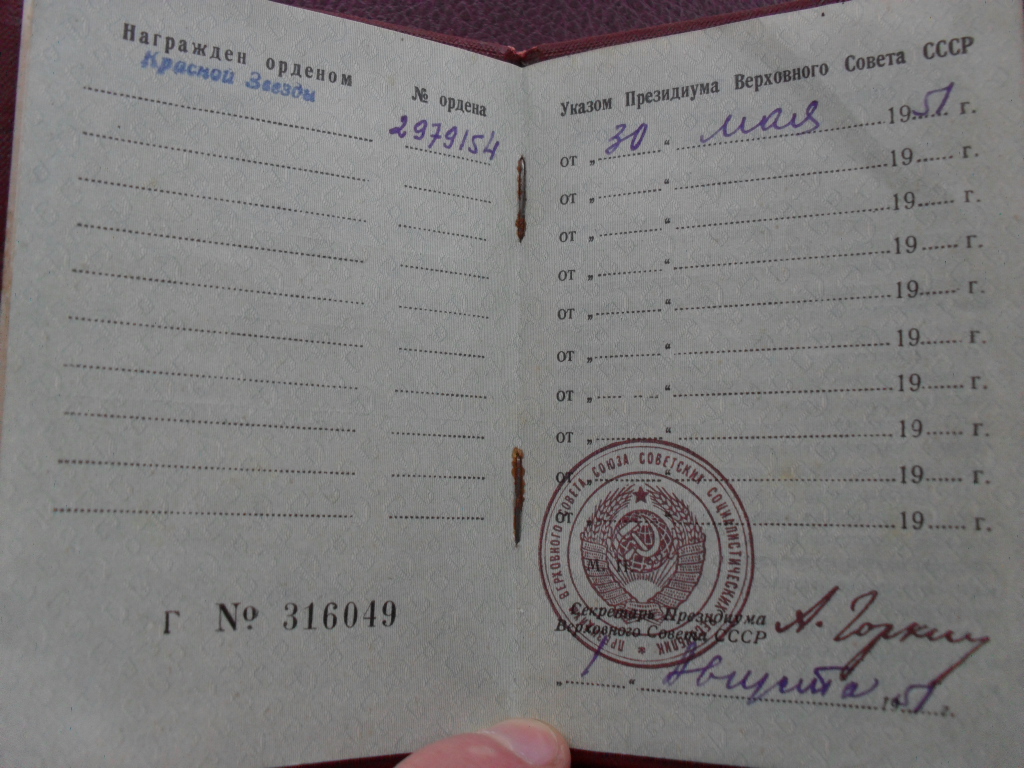 Награжден орденом
Красной Звезды
№ ордена
2979154
Г № 316049
Указом Президиума Верховного Совета СССР
от „ 30 “ мая 1951 г.
от „ “ 19 г.
от „ “ 19 г.
от „ “ 19 г.
от „ “ 19 г.
от „ “ 19 г.
от „ “ 19 г.
от „ “ 19 г.
от „ “ 19 г.
от „ “ 19 г.
ВЕРХОВНОГО СОВЕТА СОЮЗА СОВЕТСКИХ СОЦИАЛИСТИЧЕСКИХ
М. П.
Секретарь Президиума
Верховного Совета СССР
А. Горкин
„ “ Августа 1951 г.